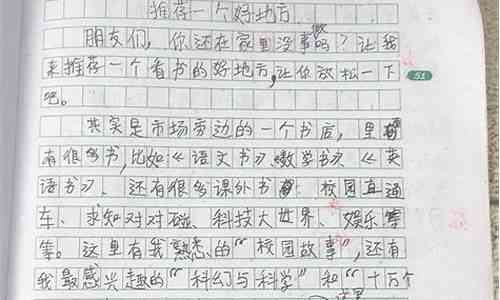 推荐一个好地方
朋友们,你还在家里没事做吗?让我
来推荐一个看书的好地方,让你放松一下
51
吧。
其实是市场旁边的一个书店,里
有很多书,比如《语文书》《数学书》《英
语书》、还有很多课外书 校园直通
车、求知对对碰、科技大世界、娱乐等
等。这里有我熟悉的“校园故事”,还有
我最感兴趣的“科幻与科学”和“十万个
这里